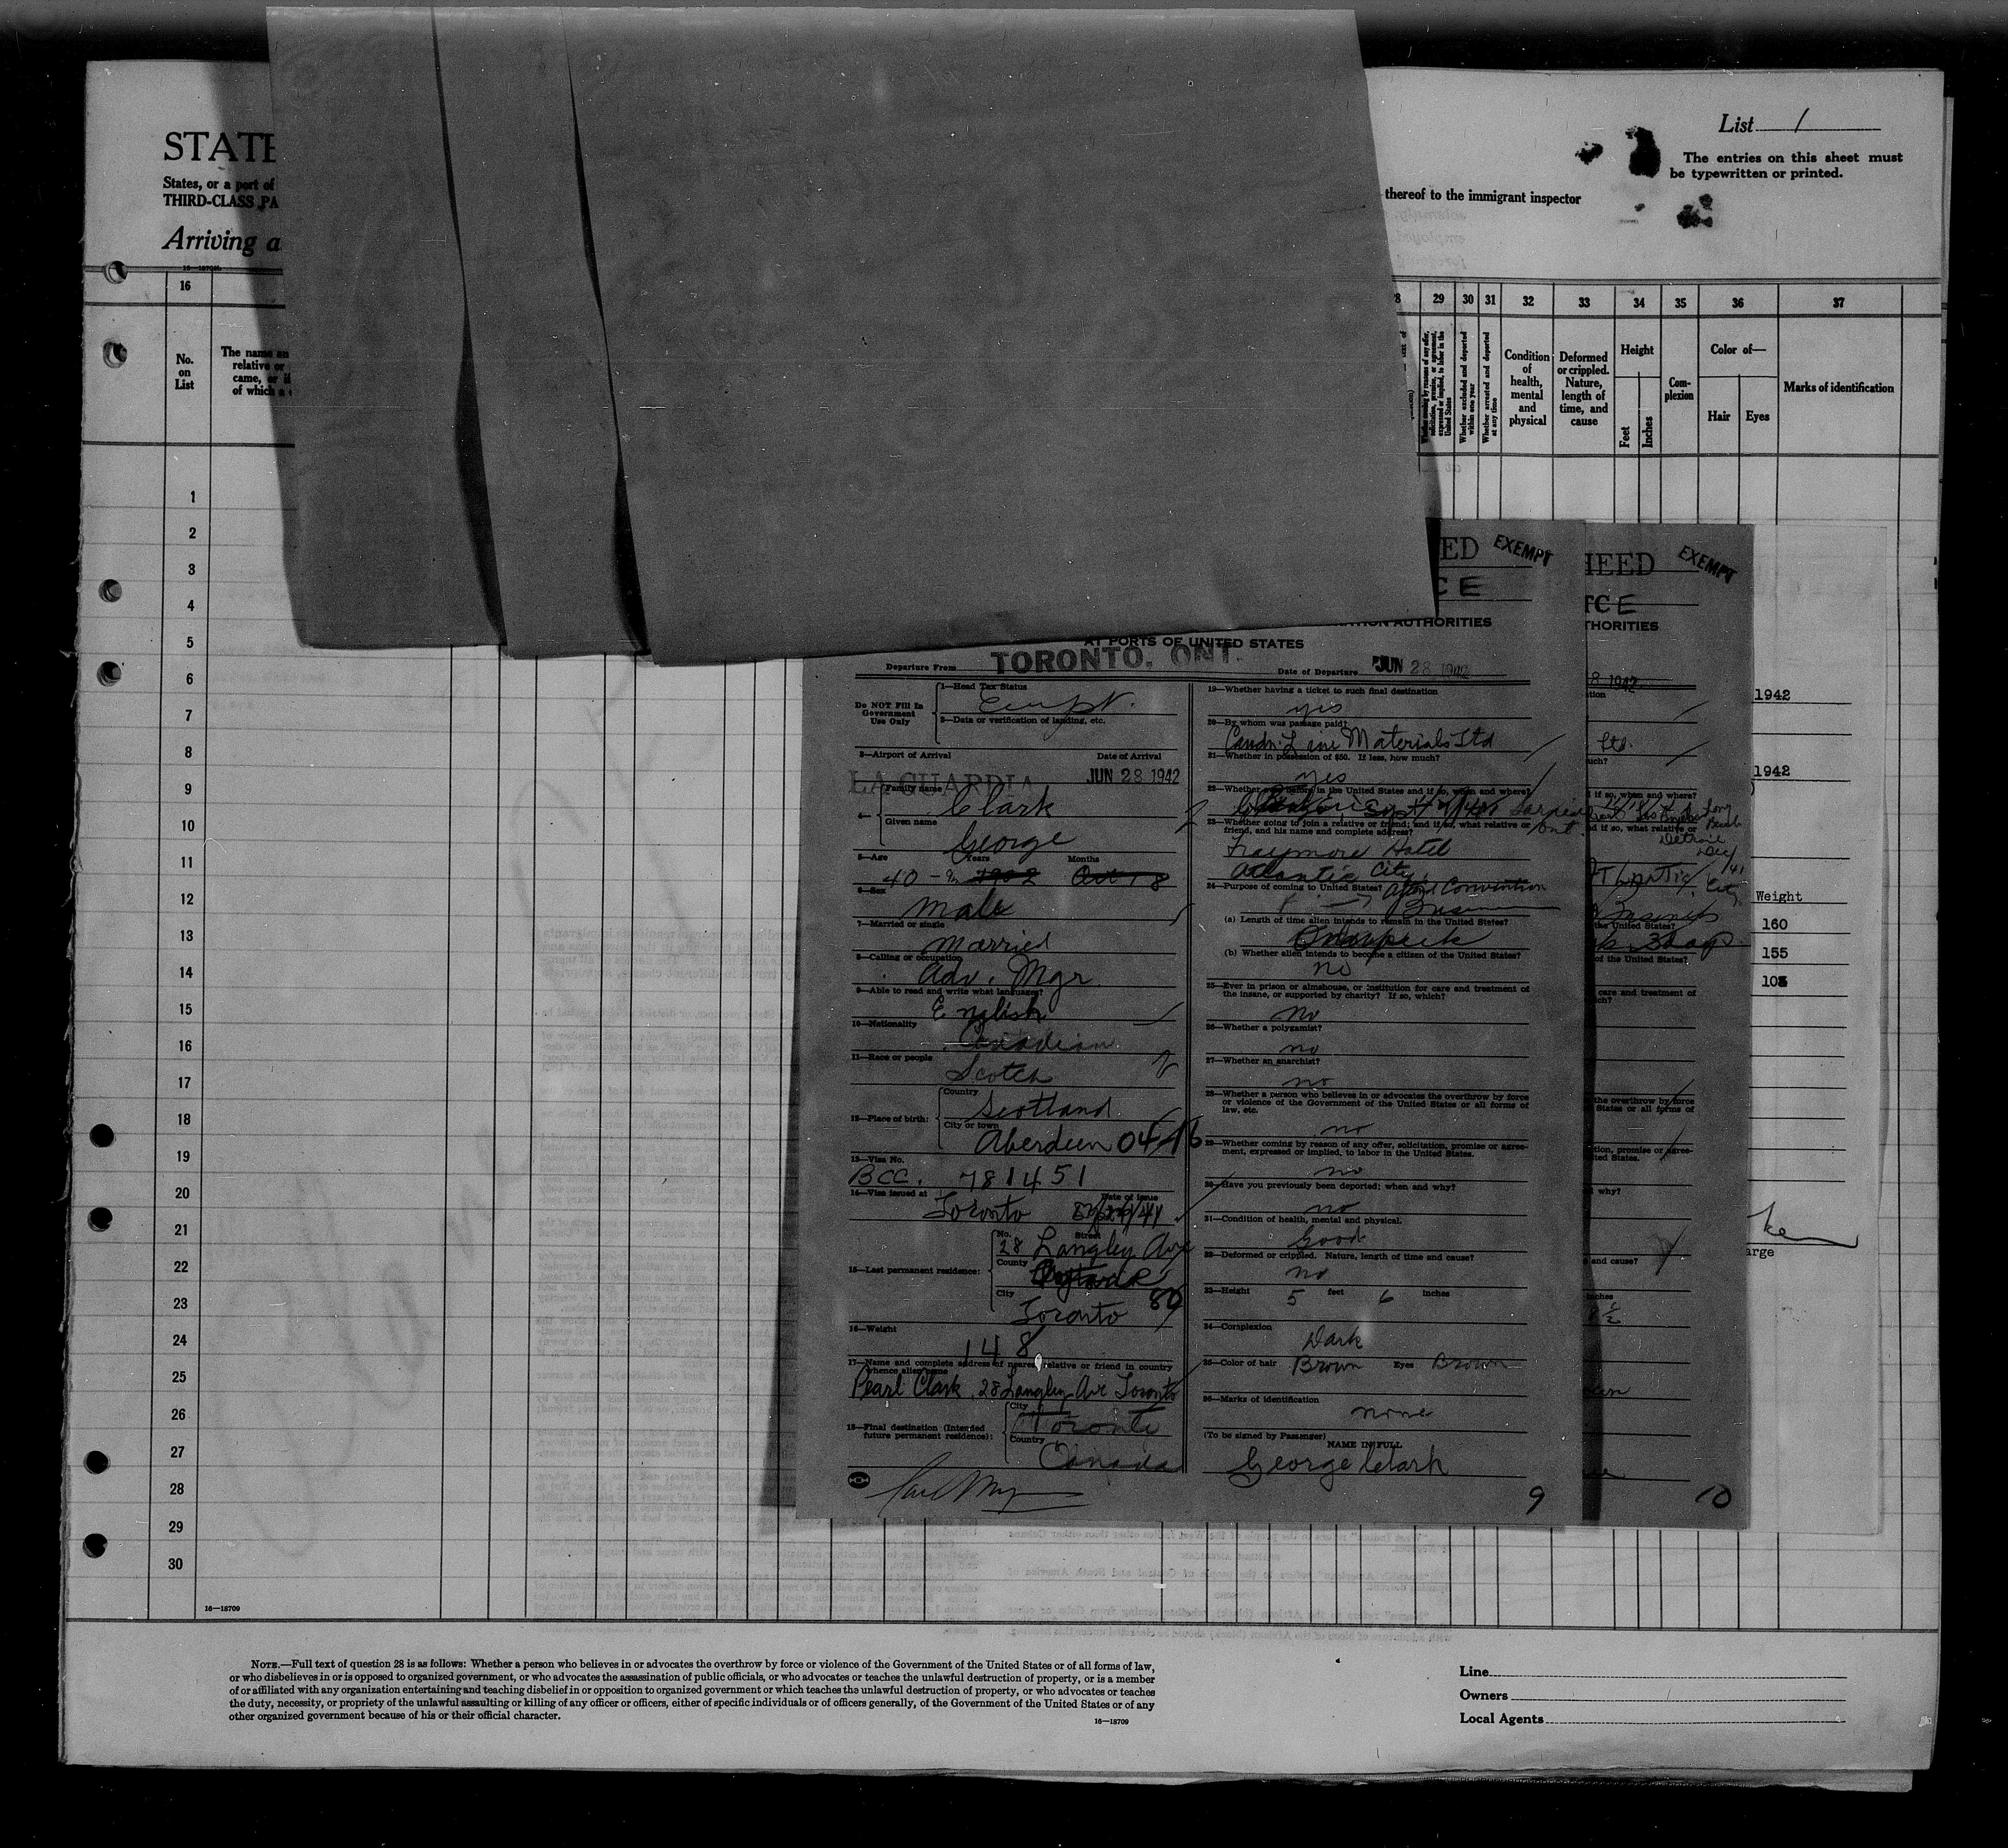 STATE
States, or a port of
THIRD-CLASS PA
Arriving a
thereof to the immigrant inspector
List 1
The entries on this sheet must
be typewritten or printed.
16
29 30 31 32 33 34 35 36 37
No.
on
List
The name an
relative or
came, or if
of which a
Whether coming by reasons of any offer, solicitation, promise, or agreement, expressed or implied, to labor in the United States
Whether excluded and deported within one year
Whether arrested and deported at any time
Condition of health, mental and physical
Deformed or crippled. Nature, length of time, and cause
Height
Feet
Inches
Com-
plexion
Color of—
Hair
Eyes
Marks of identification
1
2
3
4
5
6
7
8
9
10
11
12
13
14
15
16
17
18
19
20
21
22
23
24
25
26
27
28
29
30
16—18709
ED EXEMPT
CE
AUTHORITIES
AT PORTS OF UNITED STATES
Departure From TORONTO, ONT.
Date of Departure JUN 28 1942
Do NOT Fill In
Government
Use Only
1—Head Tax Status
2—Data or verification of landing, etc.
3—Airport of Arrival
Date of Arrival
LA GUARDIA
JUN 28 1942
4—
Family name
Clark
Given name
George
5—Age
Years
Months
40
6—Sex
male
7—Married or single
married
8—Calling or occupation
Adv. Mgr.
9—Able to read and write what languages?
English
10—Nationality
Canadian
11—Race or people
Scotch
12—Place of birth:
Country
Scotland
City or town
Aberdeen
13—Visa No.
BCC. 781451
14—Visa issued at
Date of issue
Toronto
15—Last permanent residence:
No.
Street
28 Langley Ave
County
City
Toronto
16—Weight
148
17—Name and complete address of nearest relative or friend in country
whence alien came
Pearl Clark, 28 Langley Ave Toronto
18—Final destination (Intended
future permanent residence):
City
Toronto
Country
Canada
19—Whether having a ticket to such final destination
yes
20—By whom was passage paid?
Candn. Line Materials Ltd
21—Whether in possession of $50. If less, how much?
yes
22—Whether ever before in the United States and if so, when and where?
23—Whether going to join a relative or friend; and if so, what relative or
friend, and his name and complete address?
Traymore Hotel
Atlantic City
24—Purpose of coming to United States?
Convention
(a) Length of time alien intends to remain in the United States?
(b) Whether alien intends to become a citizen of the United States?
no
25—Ever in prison or almshouse, or institution for care and treatment of
the insane, or supported by charity? If so, which?
no
26—Whether a polygamist?
no
27—Whether an anarchist?
no
28—Whether a person who believes in or advocates the overthrow by force
or violence of the Government of the United States or all forms of
law, etc.
no
29—Whether coming by reason of any offer, solicitation, promise or agree-
ment, expressed or implied, to labor in the United States.
no
30—Have you previously been deported; when and why?
no
31—Condition of health, mental and physical.
Good
32—Deformed or crippled. Nature, length of time and cause?
no
33—Height
5 feet 6 inches
34—Complexion
Dark
35—Color of hair Brown Eyes Brown
36—Marks of identification
none
(To be signed by Passenger)
NAME IN FULL
George Clark
9
HEED EXEMPT
CE
THORITIES
8 1942
Ltd.
10
1942
1942
Weight
160
155
arge
NOTE.—Full text of question 28 is as follows: Whether a person who believes in or advocates the overthrow by force or violence of the Government of the United States or of all forms of law,
or who disbelieves in or is opposed to organized government, or who advocates the assassination of public officials, or who advocates or teaches the unlawful destruction of property, or is a member
of or affiliated with any organization entertaining and teaching disbelief in or opposition to organized government or which teaches the unlawful destruction of property, or who advocates or teaches
the duty, necessity, or propriety of the unlawful assaulting or killing of any officer or officers, either of specific individuals or of officers generally, of the Government of the United States or of any
other organized government because of his or their official character.
16—18709
Line
Owners
Local Agents